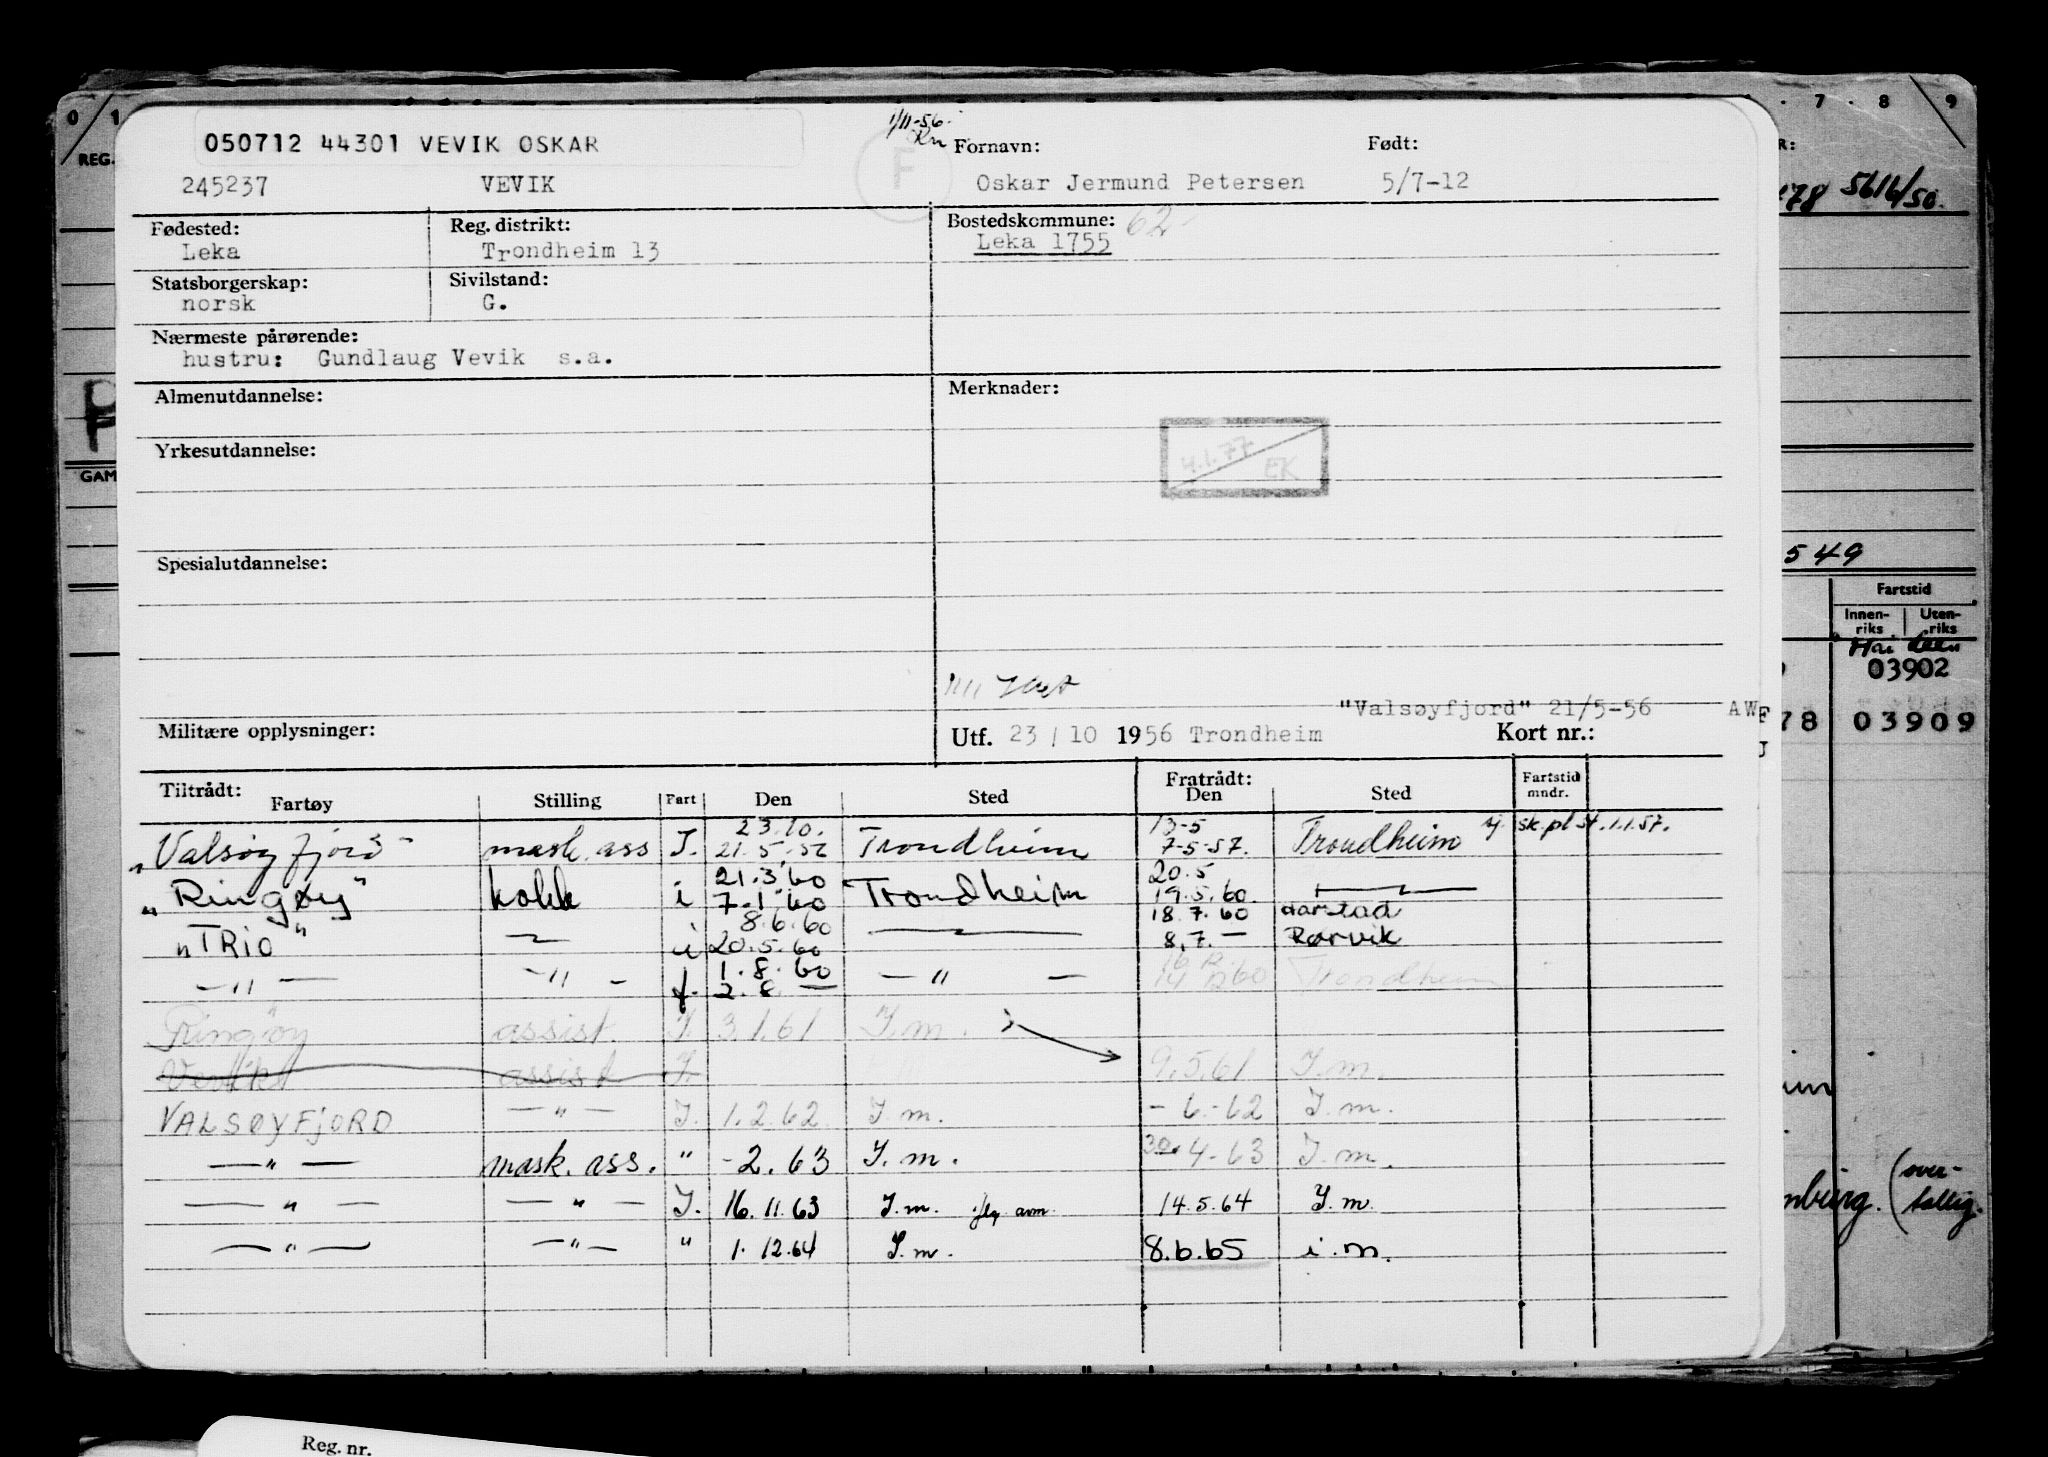 0 1 7 8 9
REG.
1/11-56.
050712 44301 VEVIK OSKAR
F
Fornavn: Født:
245237 VEVIK Oskar Jermund Petersen 5/7-12
78 5616/50.
Fødested: Reg. distrikt: Bostedskommune: 62
Leka Trondheim 13 Leka 1755
Statsborgerskap: Sivilstand:
norsk G.
Nærmeste pårørende:
hustru: Gundlaug Vevik s.a.
Almenutdannelse: Merknader:
4.1.77 EK
Yrkesutdannelse:
GAM
Spesialutdannelse:
549
Fartstid
Innen-riks Uten-riks
03902
"Valsøyfjord" 21/5-56 AW
Militære opplysninger: Utf. 23/10 1956 Trondheim Kort nr.:
78 03909
Tiltrådt: Fratrådt:
Fartøy Stilling Fart Den Sted Den Sted Fartstid mndr.
23.10. 13-5
"Valsøyfjord" mask. ass I. 21.5.56 Trondheim 7-5-57. Trondheim sk.pl. 1.1.57.
21.3.60 20.5
"Ringøy" kokk i 7.1.60 Trondheim 19.5.60. — " —
8.6.60 18.7.60 Harstad
"TRIO" — " — i 20.5.60 — " — 8.7. — Rørvik
1.8.60
— " — — " — f. 2.8. — — " — 60 Trondheim
Ringøy assist. I. 3.1.61 I.m.
assist I. 9.5.61 I.m.
VALSØYFJORD — " — I. 1.2.62. I.m. - 6.-62 I.m.
— " — mask. ass. " -2.63 I.m. 30.4-63 I.m.
— " — — " — I. 16.11.63 I.m. 14.5.64 I.m.
— " — — " — " 1.12.64 I.m. 8.6.65 i.m.
Reg. nr.